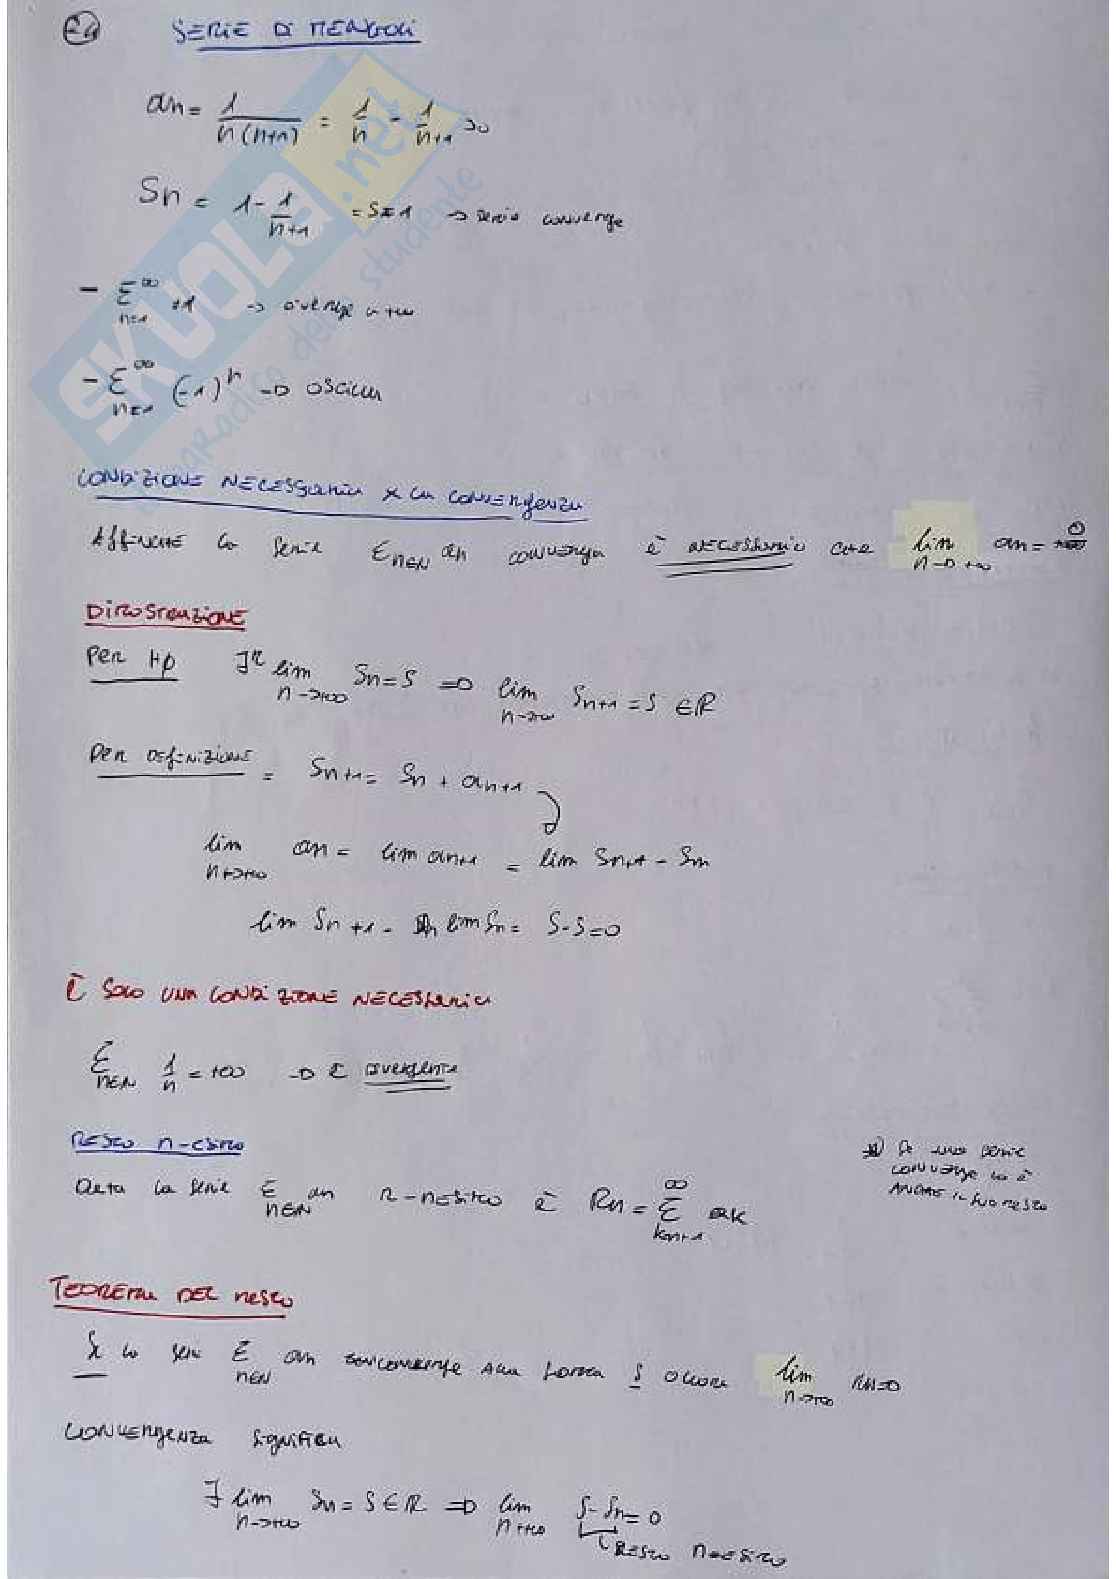 Es SERIE DI MENGOLI
an = 1/n(n+1) = 1/n - 1/n+1 >0
Sn = 1 - 1/n+1 = S=1 → serie converge
- Σ∞n=1 +1 → diverge a +∞
- Σ∞n=1 (-1)^n → oscilla
CONDIZIONE NECESSARIA x la convergenza
Affinché la serie Σn∈N an converga è necessario che lim n→+∞ an = 0
DIMOSTRAZIONE
Per Hp ∃ lim n→+∞ Sn=S ⇒ lim n→+∞ Sn+1 = S ∈ R
Per definizione = Sn+1 = Sn + an+1
lim n→+∞ an = lim an+1 = lim Sn+1 - Sn
lim Sn+1 - lim Sn = S-S=0
È solo una condizione necessaria
Σn∈N 1/n = +∞ → è divergente
Resto n-esimo
Data la serie Σn∈N an R-nesimo è Rn = Σ∞k=n+1 ak
Se una serie
converge lo è
anche il suo resto
TEOREMA DEL resto
Se la serie Σn∈N an alla somma S lim n→+∞ Rn=0
Convergenza significa
∃ lim n→+∞ Sn = S ∈ R ⇒ lim n→+∞ S-Sn = 0
Resto n-esimo
SKUOLA.net